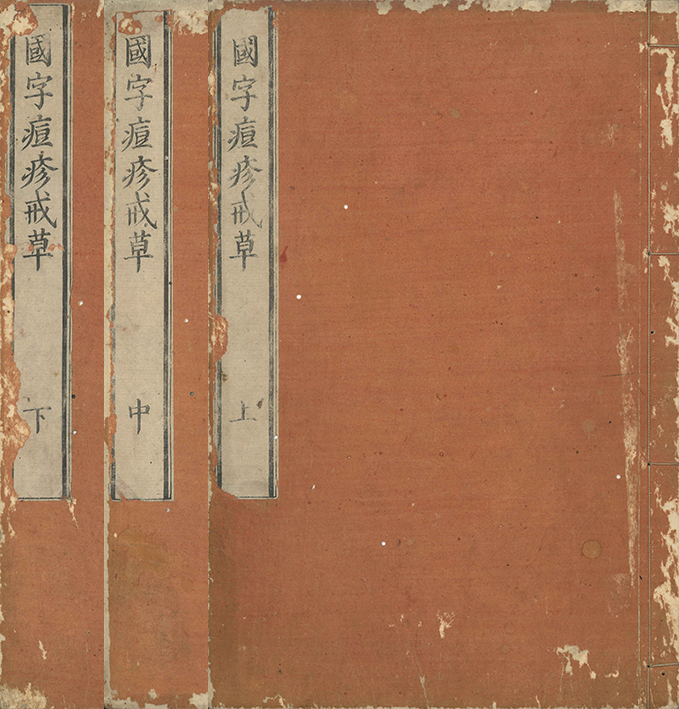 國字痘疹戒草 上
國字痘疹戒草 中
國字痘疹戒草 下